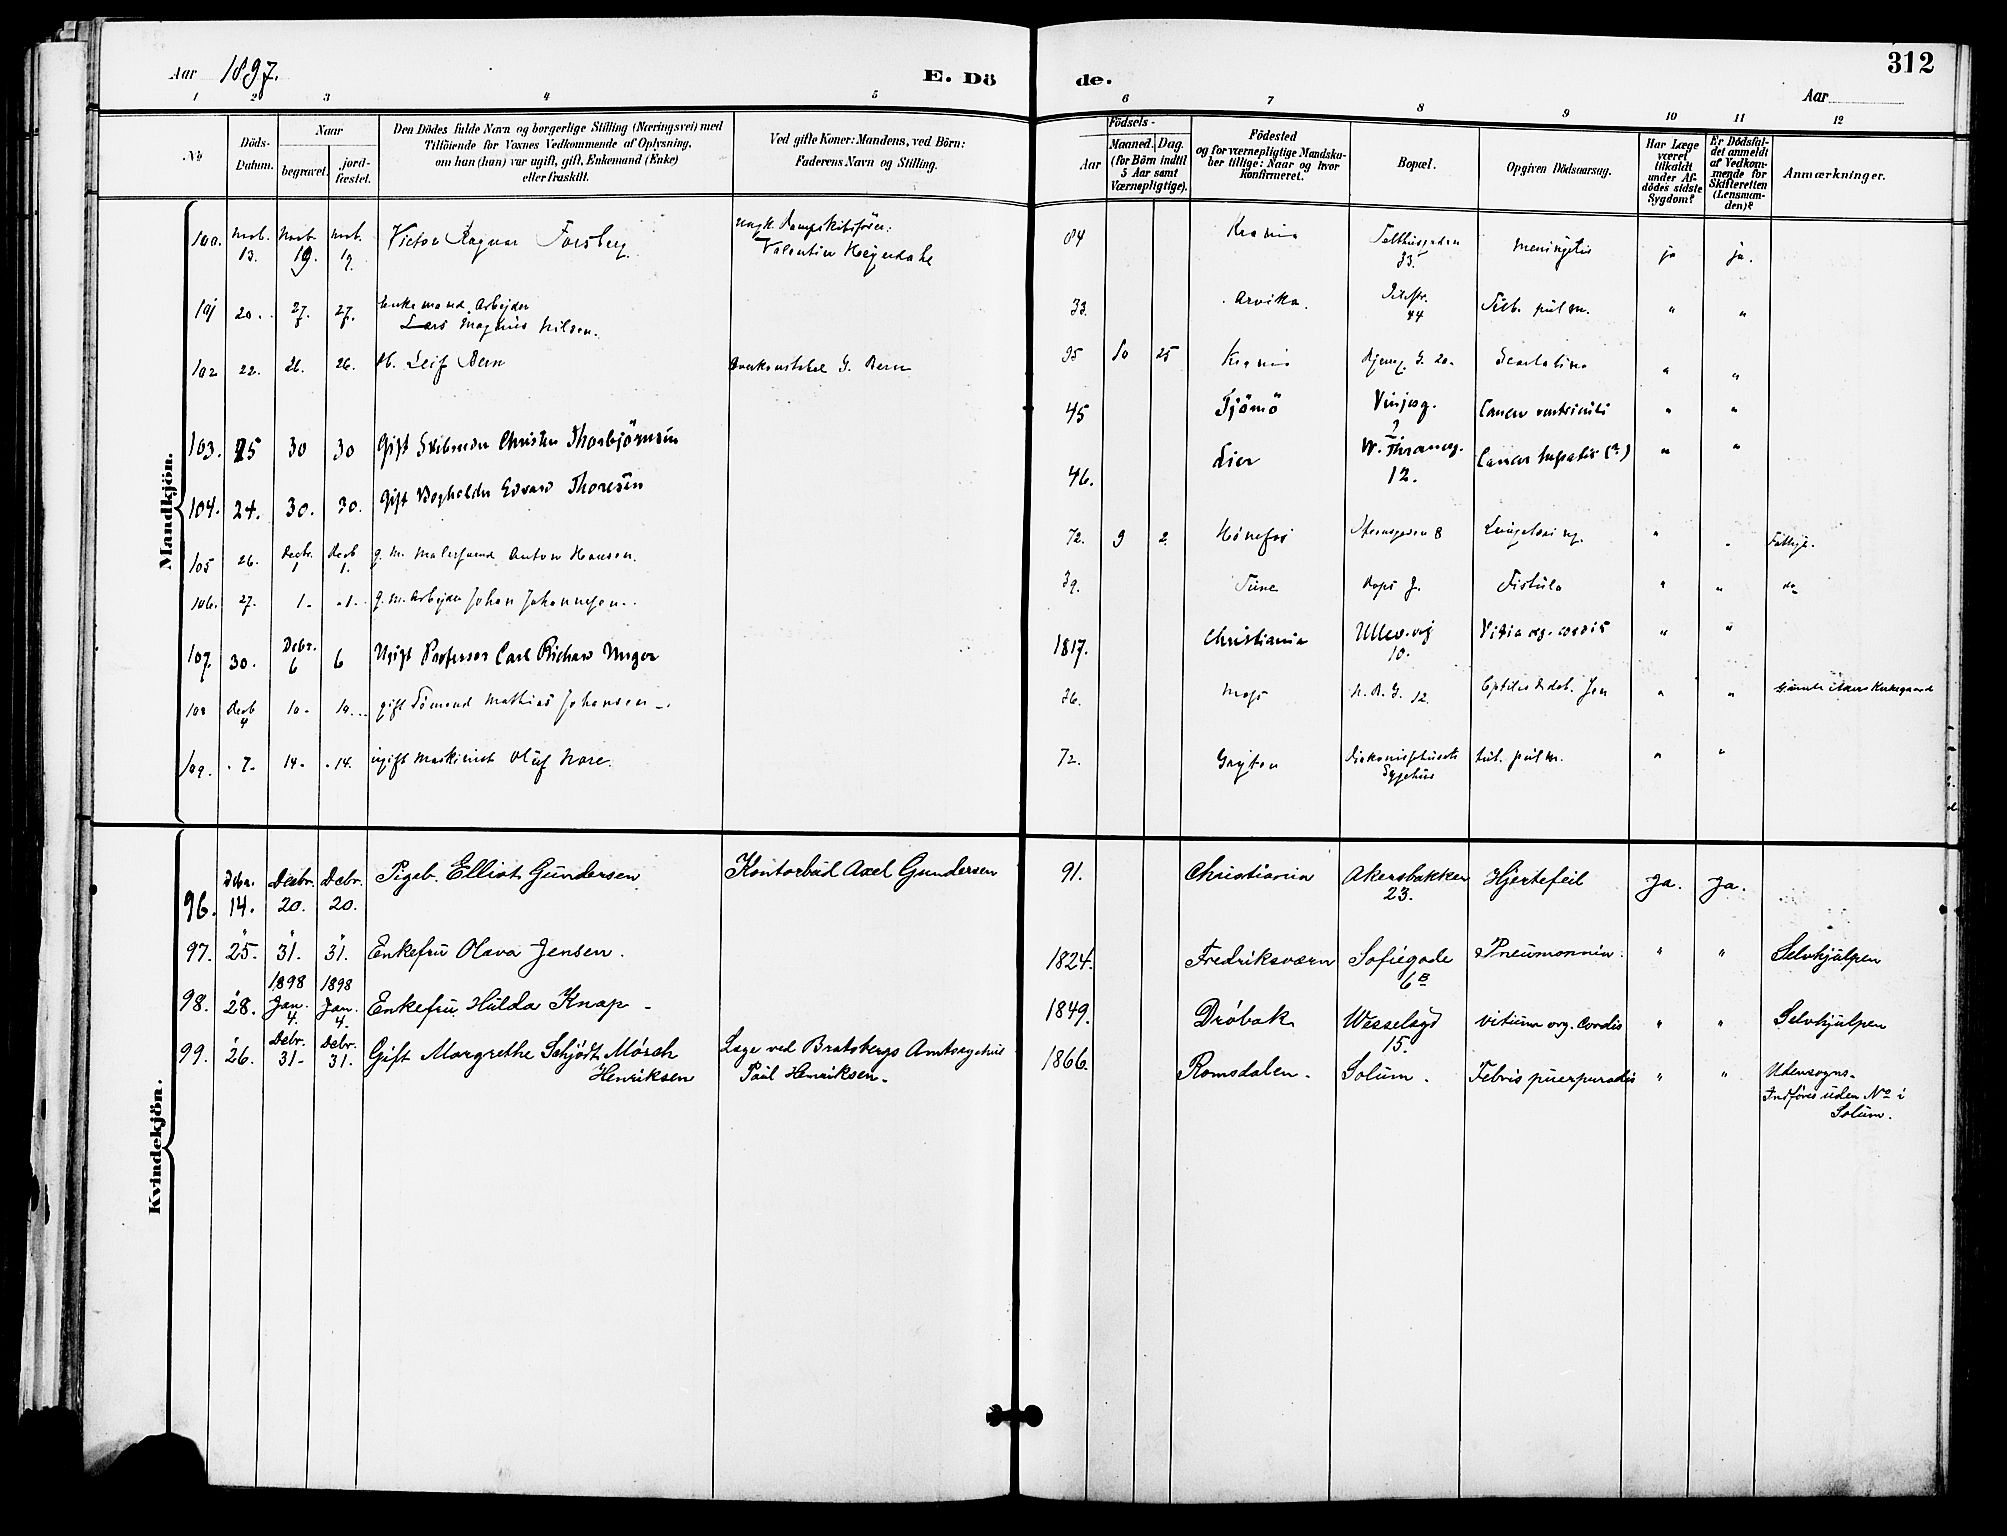 312
Aar 1897.
E. Dö de.
Aar
1 2 3 4 5 6 7 8 9 10 11 12
No
Döds-Datum.
Naar
begravet.
jord-fæstet.
Den Dödes fulde Navn og borgerlige Stilling (Næringsvei) med
Tilföiende for Voxnes Vedkommende af Oplysning,
om han (hun) var ugift, gift, Enkemand (Enke)
eller fraskilt.
Ved gifte Koner: Mandens, ved Börn:
Faderens Navn og Stilling.
Födsels-
Aar
Maaned. Dag.
(for Börn indtil
5 Aar samt
Værnepligtige).
Födested
og for værnepligtige Mandska-
ber tillige: Naar og hvor
konfirmeret.
Bopæl.
Opgiven Dödsaarsag.
Har Læge
været
tilkaldt
under Af-
dödes sidste
Sygdom?
Er Dödsfal-
det anmeldt
af Vedkom-
mende for
Skifteretten
(Lensman-
den)?
Anmærkninger.
Mandkjön.
100. Novb. 13. Novb. 19. Novb. 19. Victor Ragnar Forsberg Valentin Heyerdahl 84 Krania 33. Meningitis ja ja.
101 20. 27. 27. Enkemand Arbejder
Lars Magnus Nilsen. 33. Arvika. 44 Tub. pulm. " "
102 22. 26. 26. Leif Bern Overkonstabel G. Bern 95 10 25 Krania 20 Scarlatina " "
103. 25 30 30 Gift Skibsreder Christen Thorbjörnsen 45 Tjömö Vinjesg. Cancer ventriculi " "
104. 24. 30. 30. Gift Bogholder Edvard Thoresen 46. Lier W. Thranesg. 12. Cancer hepatis (?) " "
105 26. Decbr. 1 Decb 1. g. M. Malersvend Anton Hansen. 72. 9 2. Hönefos 8 " " Fattigk.
106. 27. 1. 1. g. M. Arbejder Johan Johannesen 39. Tune Fistula " " do
107. 30. Debr. 6 6 Ugift Professor Carl Richard Unger 1817. Christiania Ullev. vej 10. Vitia org. cordis " "
108 Decb 4 10. 10. gift Tömmd Mathias Johansen 36. Moss 12. " " Gamle Akers Kirkegaard
109. 7. 14. 14. ugift Maskinist Oluf Nore. 72. Diakonissehusets
Sygehus tub. pulm. " "
Kvindekjön.
96. Debr. 14. Decbr. 20. Debr. 20. Pigeb. Elliot Gundersen Kontorbud Axel Gundersen 91. Christiania Akersbakken 23. Hjertefeil Ja. Ja.
97. " 25. " 31. " 31. Enkefru Olava Jensen. 1824. Fredriksværn Sofiegade 6B Pneumonnia " " Selvhjælpen
98. " 28. 1898 Jan. 4. 1898 Jan. 4. Enkefru Hulda Knap 1849. Dröbak Wesselsgd 15. Vitium org. Cordis " " Selvhjælpen
99. " 26. Debr. 31 Debr. 31. Gift Margrethe Schjödt Mörch
Henriksen Læge ved Bratsbergs Amtssygehus
Paul Henriksen. 1866. Romsdalen Solum. Febris puerperalis " " Udensogns.
Indföres uden No i
Solum.